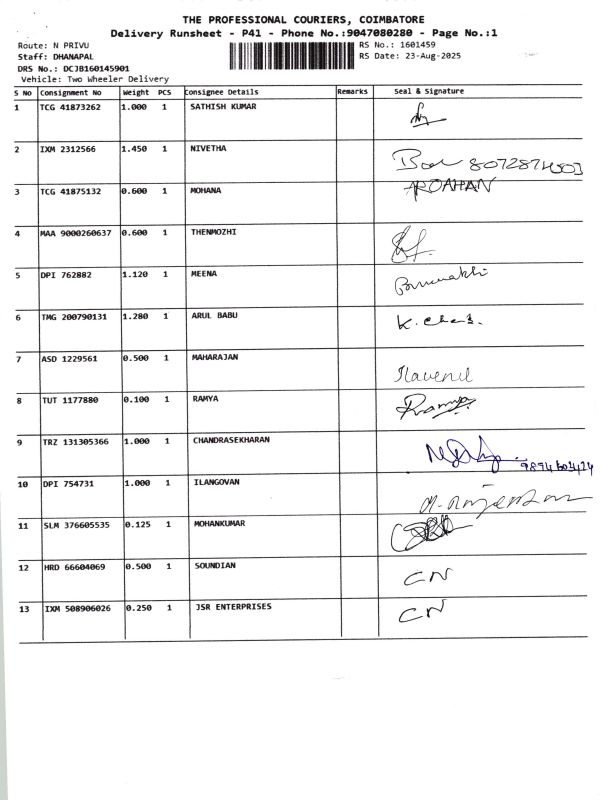 THE PROFESSIONAL COURIERS, COIMBATORE
Delivery Runsheet - P41 - Phone No.:9047080280 - Page No.:1
Route: N PRIVU RS No.: 1601459
Staff: DHANAPAL RS Date: 23-Aug-2025
DRS No.: DCJB160145901
Vehicle: Two Wheeler Delivery
S No Consignment No Weight PCS Consignee Details Remarks Seal & Signature
1 TCG 41873262 1.000 1 SATHISH KUMAR
2 IXM 2312566 1.450 1 NIVETHA
3 TCG 41875132 0.600 1 MOHANA
4 MAA 9000260637 0.600 1 THENMOZHI
5 DPI 762882 1.120 1 MEENA
6 TMG 200790131 1.280 1 ARUL BABU
7 ASD 1229561 0.500 1 MAHARAJAN Ilavenil
8 TUT 1177880 0.100 1 RAMYA Ramya
9 TRZ 131305366 1.000 1 CHANDRASEKHARAN
10 DPI 754731 1.000 1 ILANGOVAN
11 SLM 376605535 0.125 1 MOHANKUMAR
12 HRD 66604069 0.500 1 SOUNDIAN CN
13 IXM 508906026 0.250 1 JSR ENTERPRISES CN